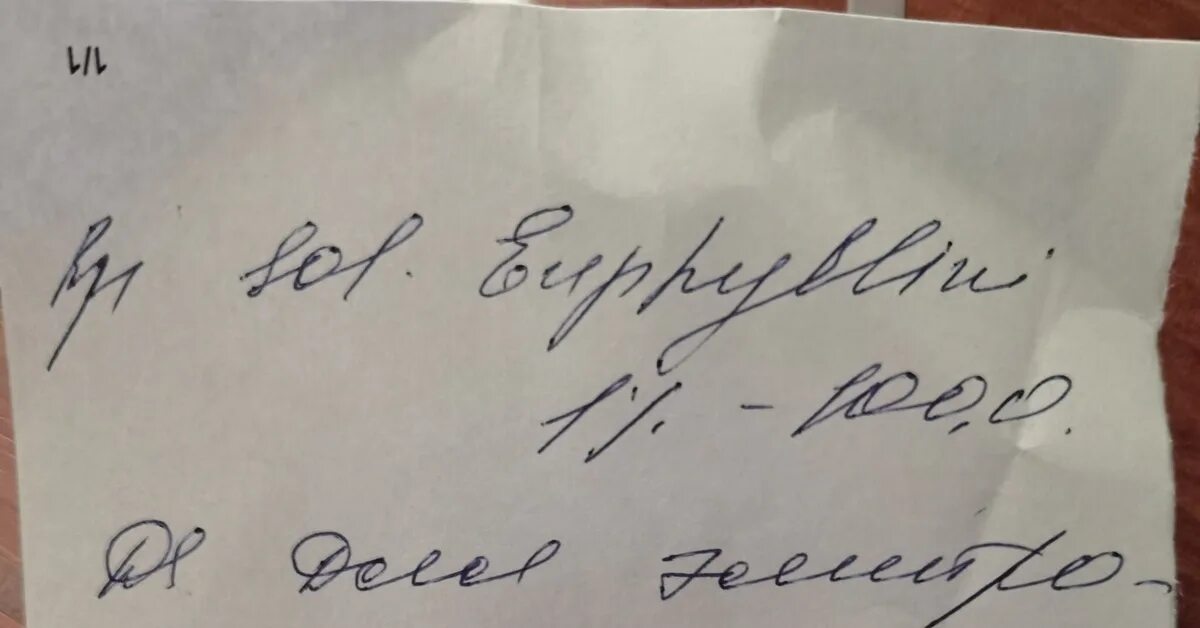 1/1
Rp: Sol. Euphyllini
1% - 100,0.
DS Для электро-